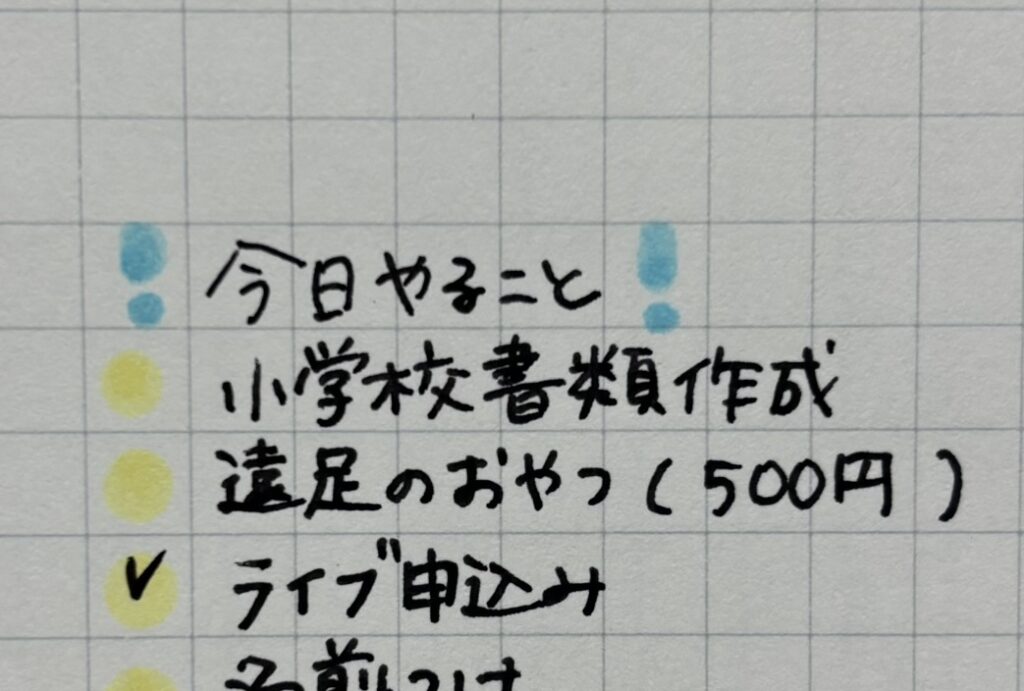 ❗今日やること❗
小学校書類作成
遠足のおやつ(500円)
✓ ライブ申込み
名前つけ